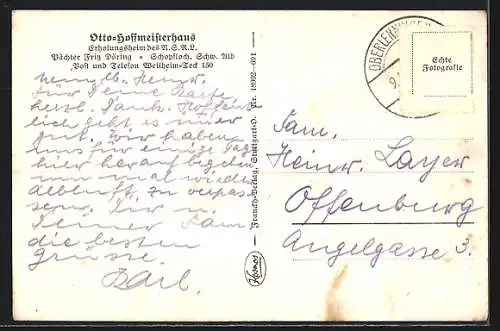 Otto-Hoffmeisterhaus
Erholungsheim des N.S.R.L.
Pächter Fritz Döring • Schopfloch, Schw. Alb
Post und Telefon Weilheim-Teck 150
Mein lb. Heinr.
für Deine Karte
herzl. Dank. Hoffent-
lich geht es immer
gut. Wir haben
uns für einige Tage
hier herauf begeben
um mal wieder
Albluft zu verpas-
sen. Dir u.
Deiner Fam
die besten
Grüsse.
Karl.
Franckh-Verlag, Stuttgart-O. Nr. 18092-69 i
Kosmos
OBERLENNINGEN
9.
Echte
Fotografie
Fam.
Heinr. Layer
Offenburg
Angelgasse 3.